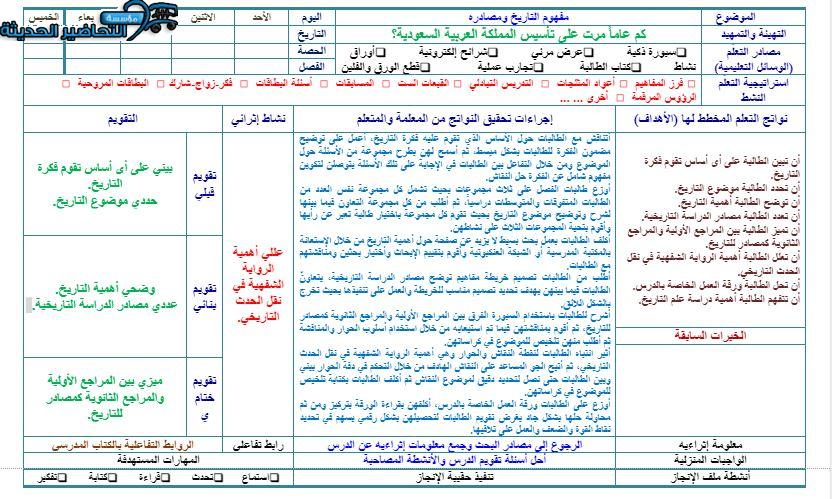 الموضوع
مفهوم التاريخ ومصادره
اليوم
الأحد
الاثنين
بعاء
الخميس
مؤسسة
التحاضير الحديثة
التهيئة والتمهيد
كم عاماً مرت على تأسيس المملكة العربية السعودية؟
التاريخ
مصادر التعلم
(الوسائل التعليمية)
سبورة ذكية
عرض مرئي
شرائح إلكترونية
أوراق
الحصة
نشاط
كتاب الطالبة
تجارب عملية
قطع الورق والفلين
الفصل
استراتيجية التعلم
النشط
فرز المفاهيم □ أعواد المثلجات □ التدريس التبادلي □ القبعات الست □ المسابقات □ أسئلة البطاقات □ فكر-زواج-شارك □ البطاقات المروحية □
الرؤوس المرقمة □ أخرى ... ...
نواتج التعلم المخطط لها (الأهداف)
إجراءات تحقيق النواتج من المعلمة والمتعلم
نشاط إثرائي
التقويم
أن تبين الطالبة على أى أساس تقوم فكرة
التاريخ.
أن تحدد الطالبة موضوع التاريخ.
أن توضح الطالبة أهمية التاريخ.
أن تعدد الطالبة مصادر الدراسة التاريخية.
أن تميز الطالبة بين المراجع الأولية والمراجع
الثانوية كمصادر للتاريخ.
أن تعلل الطالبة أهمية الرواية الشفهية في نقل
الحدث التاريخي.
أن تحل الطالبة ورقة العمل الخاصة بالدرس.
أن تتفهم الطالبة أهمية دراسة علم التاريخ.
الخبرات السابقة
أتناقش مع الطالبات حول الأساس الذي تقوم عليه فكرة التاريخ، أعمل على توضيح
مضمون الفكرة للطالبات بشكل مبسط، ثم أسمح لهن بطرح مجموعة من الأسئلة حول
الموضوع ومن خلال التفاعل بين الطالبات في الإجابة على تلك الأسئلة يتوصلن لتكوين
مفهوم شامل عن الفكرة حل النقاش.
أوزع طالبات الفصل على ثلاث مجموعات بحيث تشمل كل مجموعة نفس العدد من
الطالبات المتفوقات والمتوسطات دراسياً، ثم أطلب من كل مجموعة التعاون فيما بينها
لشرح وتوضيح موضوع التاريخ بحيث تقوم كل مجموعة باختيار طالبة تعبر عن رأيها
وأقوم بتحية المجموعات الثلاث على نشاطهن.
أكلف الطالبات بعمل بحث بسيط لا يزيد عن صفحة حول أهمية التاريخ من خلال الإستعانة
بالمكتبة المدرسية أو الشبكة العنكبوتية وأقوم بتقييم الإبحاث وأختار بحثين ومناقشتهم
مع الطالبات.
أطلب من الطالبات تصميم خريطة مفاهيم توضح مصادر الدراسة التاريخية، يتعاون
الطالبات فيما بينهن بهدف تحديد تصميم مناسب للخريطة والعمل على تنفيذها بحيث تخرج
بالشكل اللائق.
أشرح للطالبات باستخدام السبورة الفرق بين المراجع الأولية والمراجع الثانوية كمصادر
للتاريخ، ثم أقوم بمناقشتهن فيما تم استيعابه من خلال استخدام أسلوب الحوار والمناقشة
ثم أطلب منهن تلخيص للموضوع في كراساتهن.
أثير انتباه الطالبات لنقطة النقاش والحوار وهي أهمية الرواية الشفهية في نقل الحدث
التاريخي، ثم أتيح الجو المساعد على النقاش الهادف من خلال التحكم في دفة الحوار بيني
وبين الطالبات حتى نصل لتحديد دقيق لموضوع النقاش ثم أكلف الطالبات بكتابة تلخيص
للموضوع في كراساتهن.
أوزع على الطالبات ورقة العمل الخاصة بالدرس، أكلفهن بقراءة الورقة بتركيز ومن ثم
محاولة حلها بشكل جاد بغرض تقويم الطالبات لتحصيلهن بشكل رقمي يسهم في تحديد
نقاط القوة والضعف والعمل على تلافيها.
عللي أهمية
الرواية
الشفهية في
نقل الحدث
التاريخي.
تقويم
قبلي
بيني على أى أساس تقوم فكرة
التاريخ.
حددي موضوع التاريخ.
تقويم
بنائي
وضحي أهمية التاريخ.
عددي مصادر الدراسة التاريخية.
تقويم
ختام
ي
ميزي بين المراجع الأولية
والمراجع الثانوية كمصادر
للتاريخ.
معلومة إثراءيه
الرجوع إلى مصادر البحث وجمع معلومات إثراءيه عن الدرس
رابط تفاعلي
الروابط التفاعلية بالكتاب المدرسي
الواجبات المنزلية
أحل أسئلة تقويم الدرس والأنشطة المصاحبة
المهارات المستهدفة
أنشطة ملف الإنجاز
تنفيذ حقيبة الإنجاز
استماع
تحدث
قراءة
كتابة
تفكير